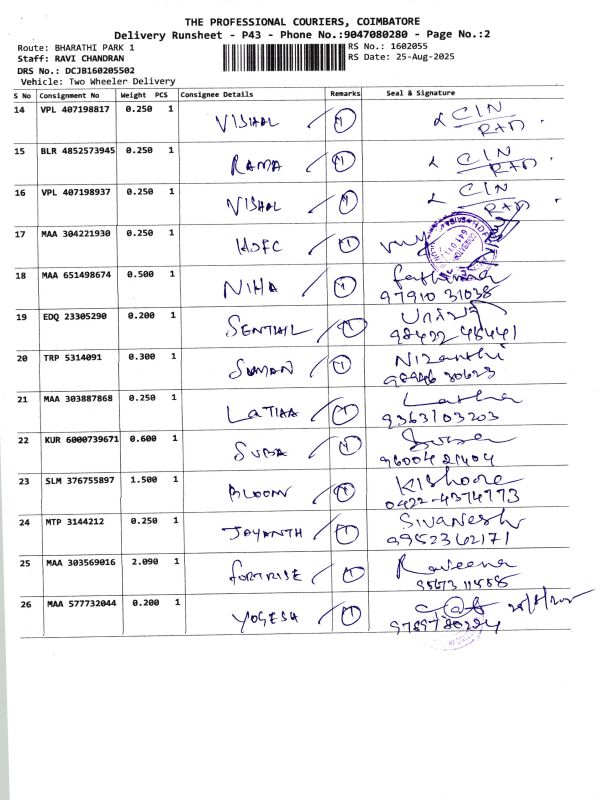 THE PROFESSIONAL COURIERS, COIMBATORE
Delivery Runsheet - P43 - Phone No.:9047080280 - Page No.:2
Route: BHARATHI PARK 1 RS No.: 1602055
Staff: RAVI CHANDRAN RS Date: 25-Aug-2025
DRS No.: DCJB160205502
Vehicle: Two Wheeler Delivery
S No Consignment No Weight PCS Consignee Details Remarks Seal & Signature
14 VPL 407198817 0.250 1 VISHAL
15 BLR 4852573945 0.250 1 RAMA
16 VPL 407198937 0.250 1 VISHAL
17 MAA 304221930 0.250 1 HDFC
18 MAA 651498674 0.500 1 NIHA Fathima
97910 31038
19 EDQ 23305290 0.200 1 SENTHIL
98422 45441
20 TRP 5314091 0.300 1 SUMAN Nizanthi
21 MAA 303887868 0.250 1 LATHA Latha
9363103203
22 KUR 6000739671 0.600 1 SUBA
9600421404
23 SLM 376755897 1.500 1 BLOOM Kishore
0422-4374773
24 MTP 3144212 0.250 1 JAYANTH Sivanesh
9952362171
25 MAA 303569016 2.090 1 FORTRISE Raveena
26 MAA 577732044 0.200 1 YOGESH
9789780224